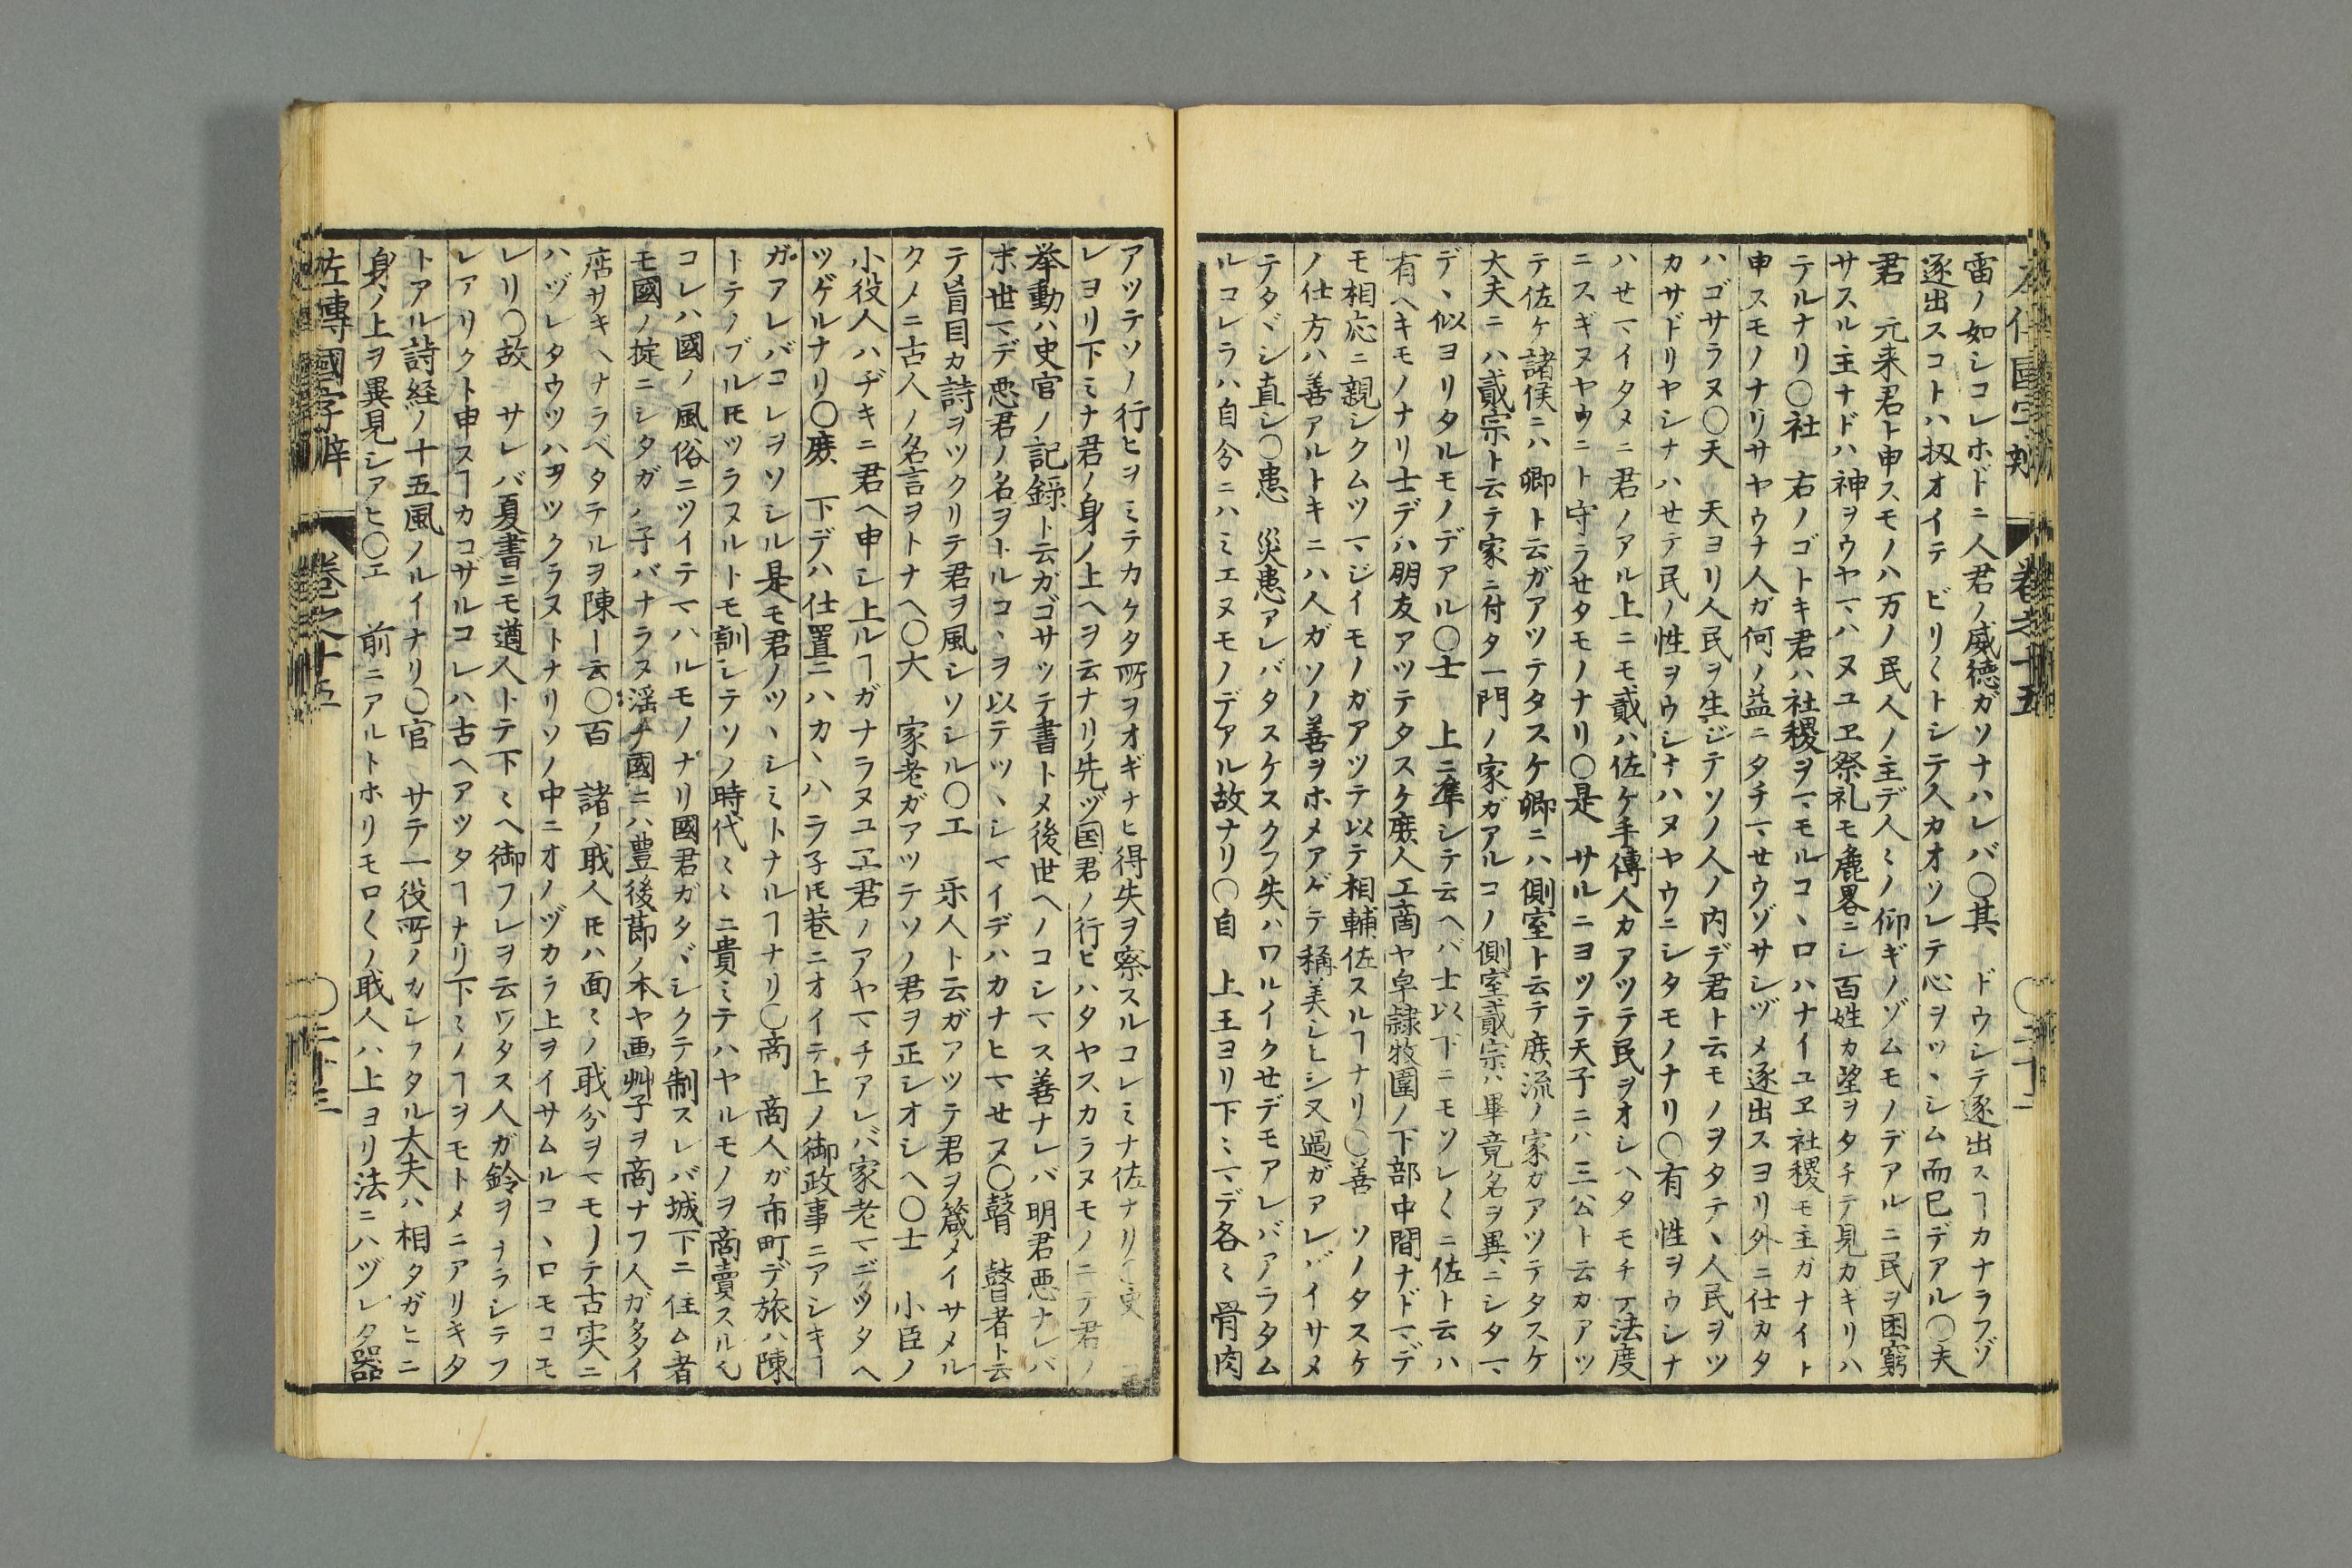 雷ノ如シコレホドニ人君ノ威徳ガソナハレバ〇其 ドウシテ逐出スヿカナラフゾ
逐出スコトハ扨オイテ ビリ〱トシテ人カオソレテ心ヲツヽシム而已デアル〇夫
君 元来君ト申スモノハ万ノ民人ノ主デ人〻ノ仰ギノゾムモノデアルニ民ヲ困窮
サスル主ナドハ神ヲウヤマハヌユヱ祭礼モ麁畧ニシ百姓カ望ヲタチテ見カギリハ
テルナリ〇社 右ノゴトキ君ハ社稷ヲマモルコヽロハナイユヱ社稷モ主ガナイト
申スモノナリサヤウナ人ガ何ノ益ニタチマせウゾサシヅメ逐出スヨリ外ニ仕カタ
ハゴサラヌ〇天 天ヨリ人民ヲ生ジテソノ人ノ内デ君ト云モノヲタテヽ人民ヲツ
カサドリヤシナハせテ民ノ性ヲウシナハヌヤウニシタモノナリ〇有 性ヲウシナ
ハせマイタメニ君ノアル上ニモ貳ハ佐ケ手傳人カアツテ民ヲオシヘタモチテ法度
ニスギヌヤウニト守ラせタモノナリ〇是 サルニヨツテ天子ニハ三公ト云カアツ
テ佐ケ諸侯ニハ卿ト云ガアツテタスケ卿ニハ側室ト云テ庶流ノ家ガアツテタスケ
大夫ニハ貳宗ト云テ家ニ付タ一門ノ家ガアルコノ側室貳宗ハ畢竟名ヲ異ニシタマ
デヽ似ヨリタルモノデアル〇士 上ニ準シテ云ヘバ士以下ニモソレ〱ニ佐ト云ハ
有ヘキモノナリ士デハ朋友アツテタスケ庶人工商ヤ皁隷牧圉ノ下部中間ナドマデ
モ相応ニ親シクムツマジイモノガアツテ以テ相輔佐スルヿナリ〇善 ソノタスケ
ノ仕方ハ善アルトキニハ人ガソノ善ヲホメアゲテ稱美シヒシ又過ガアレバイサメ
テタヾシ直シ〇患 災患アレバタスケスクフ失ハワルイクせデモアレバアラタム
ルコレラハ自分ニハミエヌモノデアル故ナリ〇自 上王ヨリ下〻マデ各〻骨肉
アツテソノ行ヒヲミテカケタ所ヲオギナヒ得失ヲ察スルコレミナ佐ナリ〇史
レヨリ下ミナ君ノ身ノ上ヘヲ云ナリ先ヅ国君ノ行ヒハタヤスカラヌモノニテ君ノ
挙動ハ史官ノ記録ト云ガゴサツテ書トメ後世ヘノコシマス善ナレバ明君悪ナレバ
末世マデ悪君ノ名ヲトルコヽヲ以テツヽシマイデハカナヒマせヌ〇瞽 瞽者ト云
テ盲目カ詩ヲツクリテ君ヲ風シソシル〇工 乐人ト云ガアツテ君ヲ箴メイサメル
タメニ古人ノ名言ヲトナヘ〇大 家老ガアツテソノ君ヲ正シオシヘ〇士 小臣ノ
小役人ハヂキニ君ヘ申シ上ルヿガナラヌユヱ君ノアヤマチアレバ家老マデツタヘ
ツゲルナリ〇庶 下デハ仕置ニハカヽハラ子𪜈巷ニオイテ上ノ御政事ニアシキヿ
ガアレバコレヲソシル是モ君ノツヽシミトナルヿナリ〇商 商人ガ市町デ旅ハ陳
トテノブル𪜈ツラヌルトモ訓シテソノ時代〻〻ニ貴ミテハヤルモノヲ商賣スル也
コレハ國ノ風俗ニツイテマハルモノナリ國君ガタヾシクテ制スレバ城下ニ住ム者
モ國ノ掟ニシタガハ子バナラヌ淫ナ國ニハ豊後莭ノ本ヤ画艸子ヲ商ナフ人ガ多イ
店サキヘナラベタテルヲ陳ート云〇百 諸ノ職人𪜈ハ面〻ノ職分ヲマモリテ古実ニ
ハヅレタウツハヲツクラヌトナリソノ中ニオノヅカラ上ヲイサムルコヽロモコモ
レリ〇故 サレバ夏書ニモ遒人トテ下〻ヘ御フレヲ云ワタス人ガ鈴ヲナラシテフ
レアリクト申スヿカコザルコレハ古ヘアツタヿナリ下ミノヿヲモトメニアリキタ
トアル詩経ノ十五風ノルイナリ〇官 サテ一役所ノカシフタル大夫ハ相タガヒニ
身ノ上ヲ異見シアヒ〇工 前ニアルトホリモロ〱ノ職人ハ上ヨリ法ニハヅレタ器
左傳國字辯 卷之十五 〇二十三